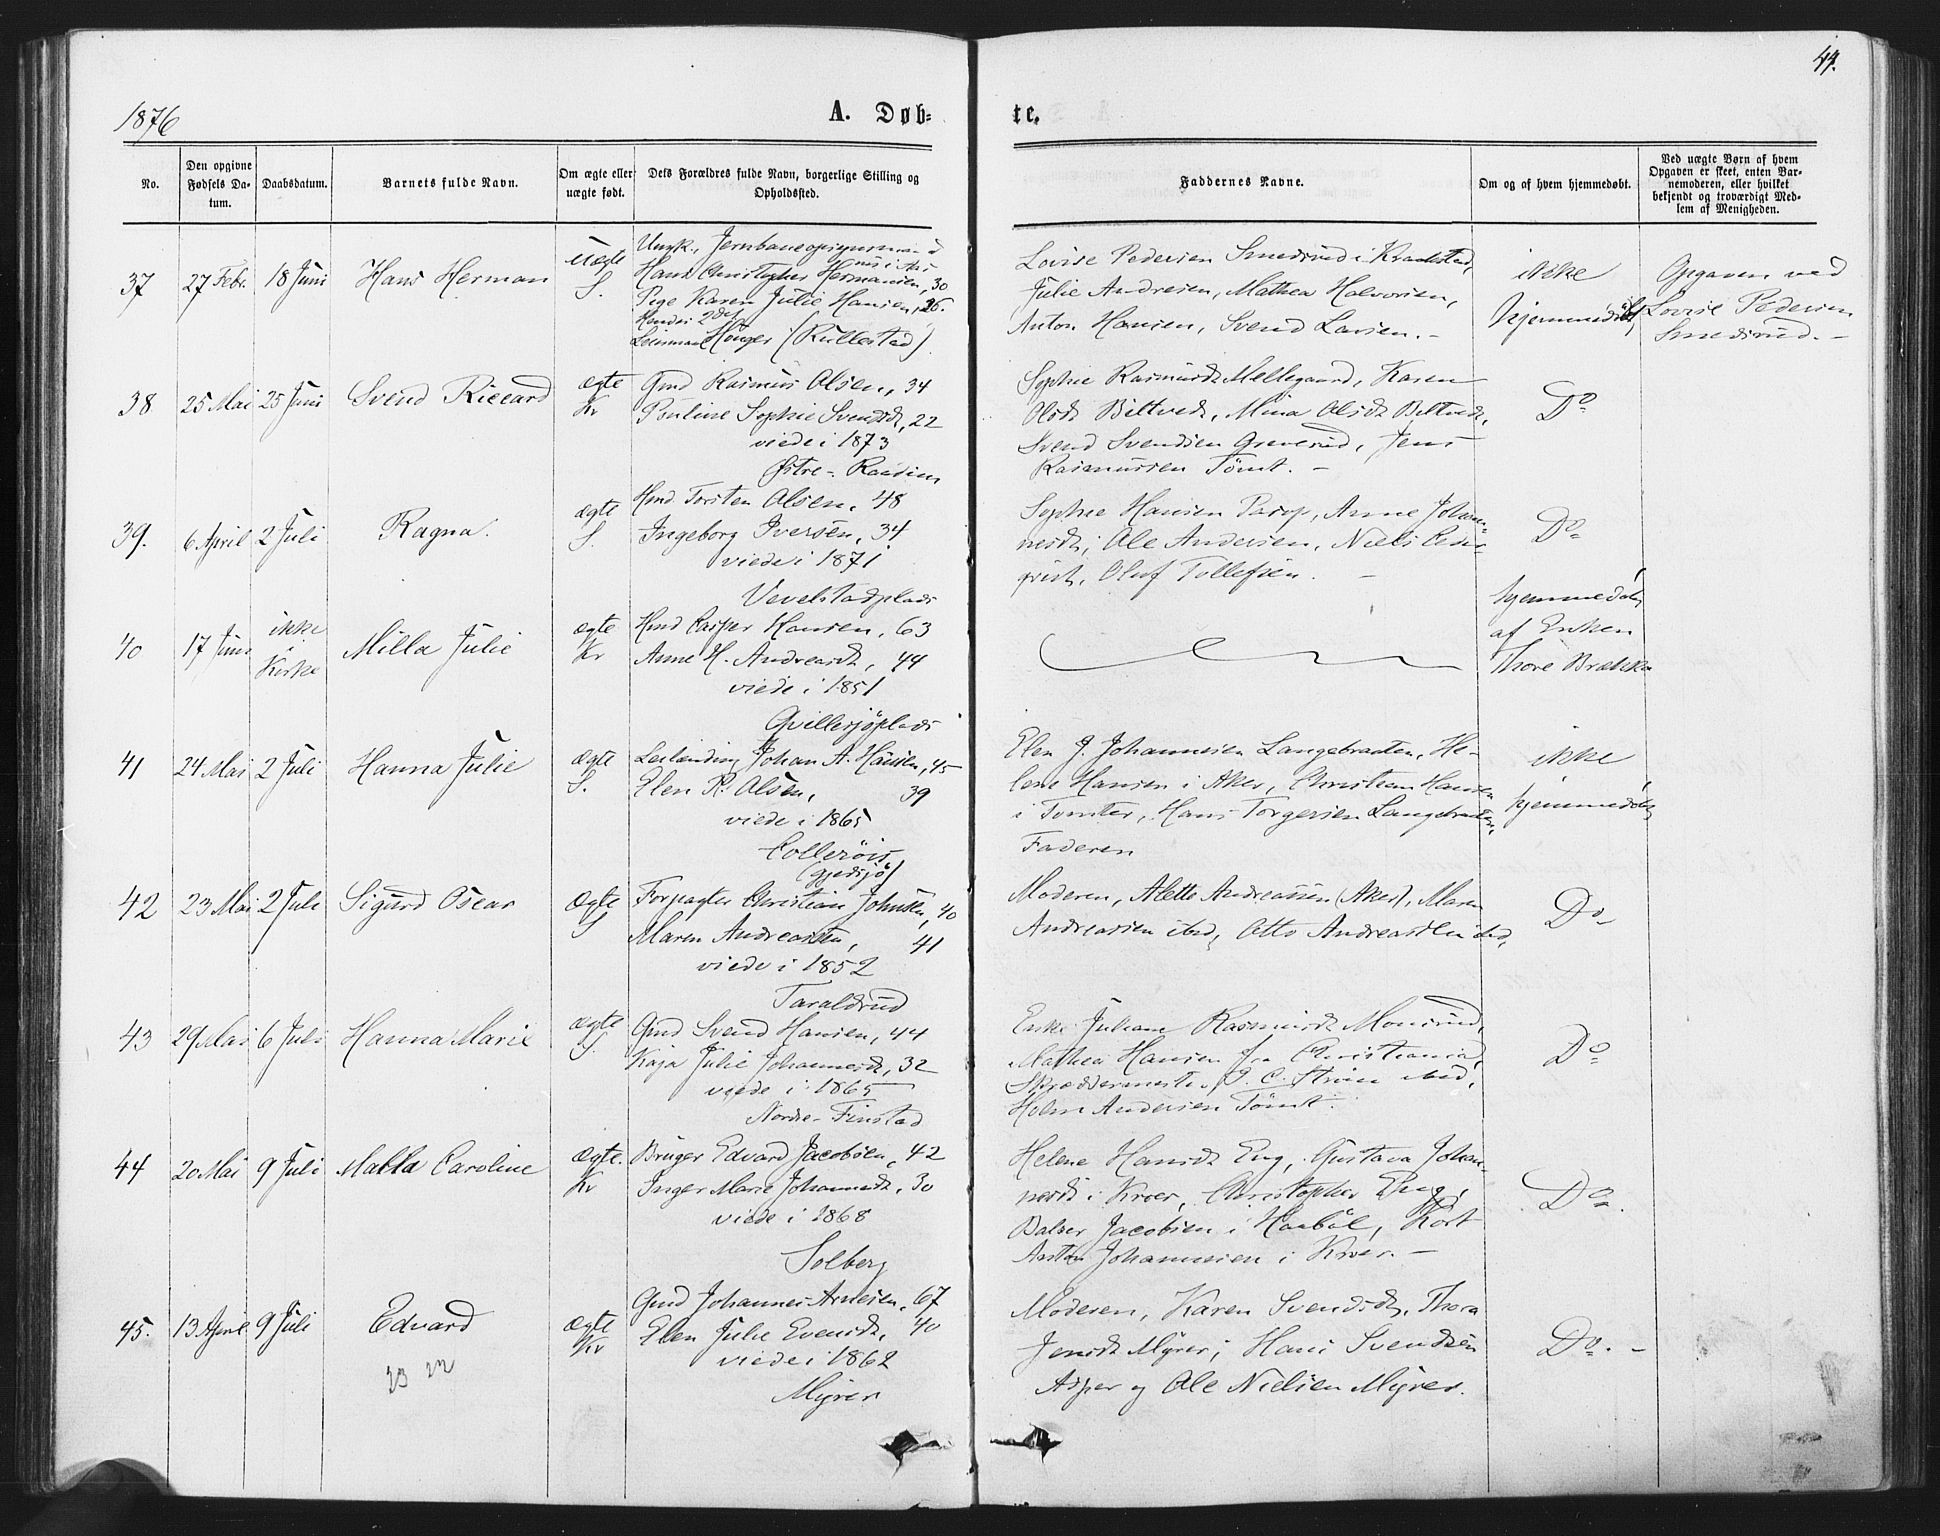 44.
1876
A. Døb-
te.
No.
Den opgivne Fødsels Da-tum.
Daabsdatum.
Barnets fulde Navn.
Om ægte eller uægte født.
Dets Forældres fulde Navn, borgerlige Stilling og Opholdssted.
Faddernes Navne.
Om og af hvem hjemmedøbt.
Ved uægte Børn af hvem Opgaven er skeet, enten Bar-nemoderen, eller hvilket bekjendt og troværdigt Med-lem af Menigheden.
37
27 Febr.
18 Juni
Hans Herman
uægte
S.
Ungk.
Hans Christopher Hermansen, 30
Pige Karen Julie Hansen, 26.
Lensmand (Kullestad)
Lovise Pedersen Smedsrud i Kraakstad,
Julie Andresen, Mathea Halvorsen,
Anton Hansen, Svend Larsen. –
ikke
hjemmedøbt
Opgaven ved
Lovise Pedersen
Smedsrud. –
38
25 Mai
25 Juni
Svend Riccard
ægte
Kr
Gmd Rasmus Olsen, 34
Pouline Sophie Svendsdt, 22
viede i 1873
Østre-
Sophie Rasmusdt Mellegaard, Karen
Olsdt Biltvedt, Mina Olsdt Biltvedt,
Svend Svendsen Greverud, Jens
Rasmussen Tömt. –
Do
39.
6 April
2 Juli
Ragna.
ægte
S.
Hmd Torsten Olsen, 48
Ingeborg Iversen, 34
viede i 1871
Vevelstadplads
Sophie Hansen Parup, Anne Johan-
nesdt, Ole Andersen, Niels Ceder
qvist, Oluf Tollefsen. –
Do
40
17 Juni
ikke
i
Kirke
Milla Julie
ægte
Kr
Hmd Casper Hansen, 63
Anne H. Andreasdt, 44
viede i 1851
Gvillesjöplads
hjemmedøbt
af Enken
Thore Brække
41
24 Mai
2 Juli
Hanna Julie
ægte
S.
Leilending Johan A. Hansen, 45
Elen R. Olsen, 39
viede i 1865
Colleröis
(Gjedsjö)
Elen J. Johannesen Langebraaten, He-
lene Hansen i Aker, Christian Hansen
i Tomter, Hans Torgersen Langebraaten,
Faderen
ikke
hjemmedøbt
42
23 Mai
2 Juli
Sigurd Oscar
ægte
S
Forpagter Christian Johnsen, 40
Maren Andreasten, 41
viede i 1852
Taraldrud
Moderen, Alette Andreassen (Aker), Maren
Andreassen ibid, Otto Andreassen ibid,
Do
43
29 Mai
6 Juli
Hanna Marie
ægte
S.
Gmd Svend Hansen, 44
Kaja Julie Johannesdt, 32
viede i 1865
Nordre-Finstad
Enke Juliane Rasmusdt Monsrud,
Mathea Hansen fra Christiania,
Skræddermester J. C. Ström ibid,
Holm Andersen Tömt.
Do
44
20 Mai
9 Juli
Malla Caroline
ægte.
Kr
Bruger Edvard Jacobsen, 42
Inger Marie Johannesdt, 30
viede i 1868
Solberg
Helene Hansdt Eng, Gustava Johan-
nesdt i Kroer, Christopher Eng,
Balser Jacobsen i Haaböl, Kort
Anton Johannesen i Kroer. –
Do.
45.
13 April
9 Juli
Edvard
ægte
Kr
Gmd Johannes Arnesen, 67
Elen Julie Evensdt, 40
viede i 1862
Myrer
Moderen, Karen Svendsdt, Thora
Jensdt Myrer, Hans Svendsen
Asper og Ole Nielsen Myrer.
Do. –
23 22